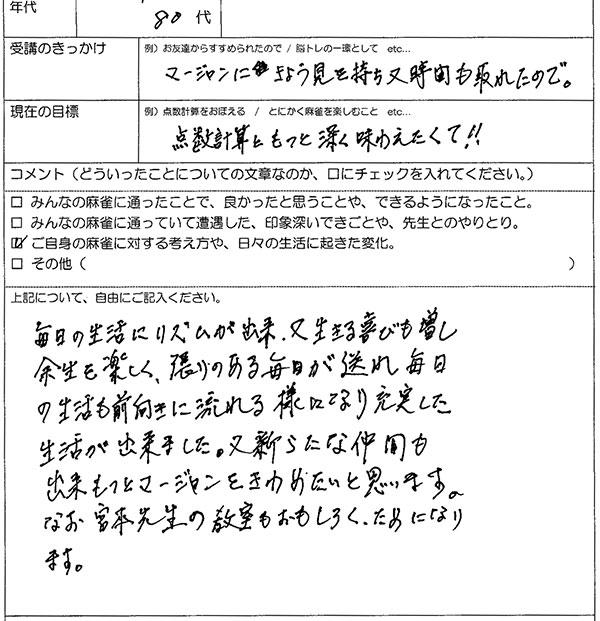 年代
80 代
受講のきっかけ
例）お友達からすすめられたので / 脳トレの一環として etc…
マージャンにきょう見を持ち又時間も取れたので。
現在の目標
例）点数計算をおぼえる / とにかく麻雀を楽しむこと etc…
点数計算ともっと深く味わえたくて!!
コメント（どういったことについての文章なのか、口にチェックを入れてください。）
□ みんなの麻雀に通ったことで、良かったと思うことや、できるようになったこと。
□ みんなの麻雀に通っていて遭遇した、印象深いできごとや、先生とのやりとり。
☑ ご自身の麻雀に対する考え方や、日々の生活に起きた変化。
□ その他（ ）
上記について、自由にご記入ください。
毎日の生活にリズムが出来、又生きる喜びも増し
余生も楽しく、張りのある毎日が送れ毎日
の生活も前向きに流れる様になり充実した
生活が出来ました。又新らたな仲間も
出来もっとマージャンをきわめたいと思います。
なお宮本先生の教室もおもしろく、ためになり
ます。